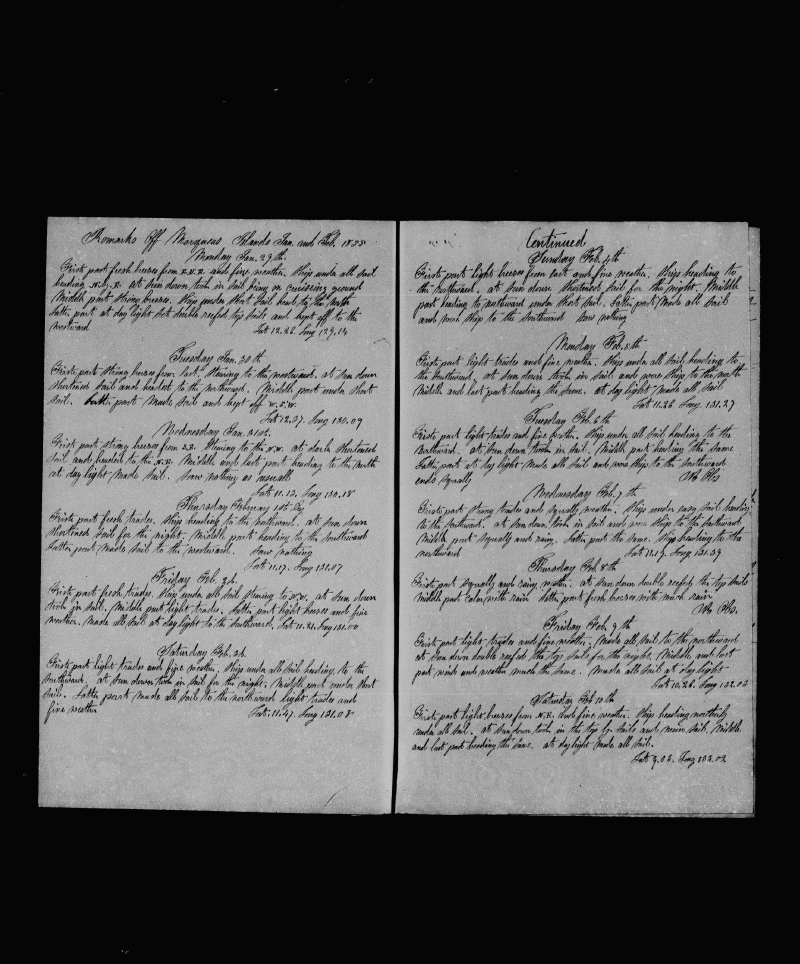 Remarks Off Marqueas Islands Jan. and Feb. 1855
Monday Jan. 29th.
First part fresh breeses from E.N.E. and fine weather. Ship under all sail
heading N. by E. at Sun down took in sail being on cruissing ground
Middle part strong breeses. Ship under short sail heads to the North
Latter part at day light set double reefed top sails and kept off to the
westward
Lat. 12.26. Long 129.14
Tuesday Jan. 30th
First part strong breeses from East. stearing to the westward. at sun down
shortened sail and headed to the northward. Middle part under short
sail. Latter part made sail and kept off W.S.W.
Lat. 12.37. Long 130.09
Wednesday Jan. 31st.
First part strong breeses from E.S. Stearing to the N.W. at dark shortened
sail and headed to the N.E. Middle and last part heading to the North
at day light made sail. Saw nothing as usuall
Lat. 11.12. Long 130.18
Thursday February 1st. Day
First part fresh trades. Ship heading to the northward. at sun down
shortened sail for the night. Middle part heading to the southward
Latter part made sail to the westward. Saw nothing
Lat. 11.17. Long 131.07
Friday Feb. 2d.
First part fresh trades. Ship under all sail stearing to W.S.W. at sun down
took in sail. Middle part light trades. Latter part light breeses and fine
weather. Made all sail at day light to the southward. Lat. 11.31. Long 131.00
Saturday Feb. 3d.
First part light trades and fine weather. Ship under all sail heading to the
southward. at sun down took in sail for the night. Middle part under short
sail. Latter part made all sail to the northward light trades and
fine weather
Lat. 11.47. Long 131.08
Continued
Sunday Feb. 4th
First part light breeses from east and fine weather. Ships heading to
the northward. at sun down shortened sail for the night. Middle
part heading to northward under short sail. Latter part made all sail
and wore ship to the southward saw nothing
Monday Feb. 5th
First part light trades and fine weather. Ship under all sail heading to
the southward. at sun down took in sail and wore ship to the north
Middle and last part heading the same. at day light made all sail
Lat. 11.26 Long. 131.27
Tuesday Feb. 6th
First part light trades and fine weather. Ship under all sail heading to the
Northward. at sun down took in sail. Middle part heading the same
Latter part at day light made all sail and wore ship to the southward
ends squally
No Obs
Wednesday Feb. 7th
First part strong trades and squally weather. Ship under easy sail heading
to the southward. at sun down took in sail and wore ship to the southward
Middle part squally and rainy. Latter part the same. Ship heading to the
northward
Lat. 11.19. Long 131.39
Thursday Feb. 8th
First part squally and rainy weather. at sun down double reefed the top sails
Middle part calm with rain Latter part fresh breeses with much rain
No Obs.
Friday Feb. 9th
First part light trades and fine weather. Made all sail to the northward
at sun down double reefed the top sails for the night. Middle and last
part winds and weather much the same. Made all sail at day light
Lat. 10.26. Long 132.03
Saturday Feb 10th
First part light breeses from N.E. and fine weather. Ship heading northerly
under all sail. at sun down took in the top g. sails and main sail. Middle
and last part heading the same. at daylight made all sail.
Lat 9.02. Long 132.02